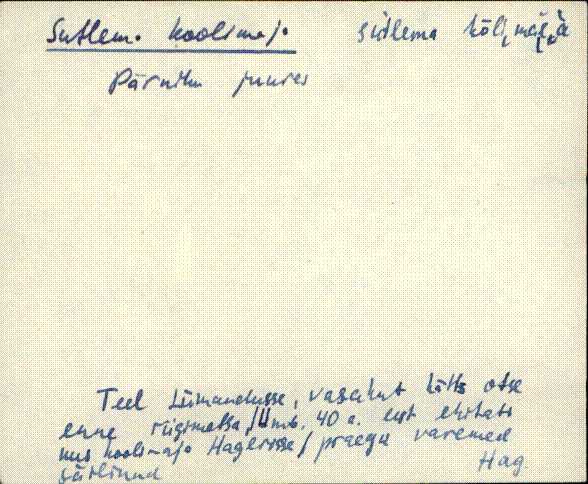 Sutlema koolimaja sutlema kõlimaja
Pärnihu juures
Teel Liimandusse, vasakut kätt otse
enne riigimetsa / Umb. 40 a. eest ehitati
uus koolimaja Hagerisse / praegu varemed
säilinud Hag